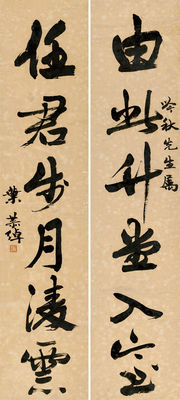 由此升堂入室
吟秋先生属
任君步月凌云
葉恭綽